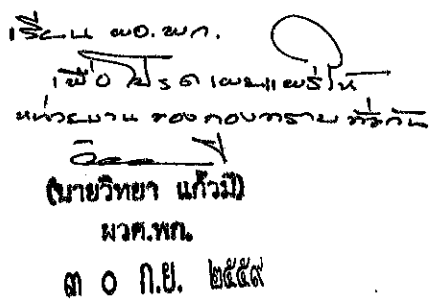 เรียน ผอ.พก.
เพื่อโปรดเผยแพร่ให้
หน่วยงานของกองทราบทั่วกัน
(นายวิทยา แก้วมี)
ผวศ.พก.
๓ ๐ ก.ย. ๒๕๕๙